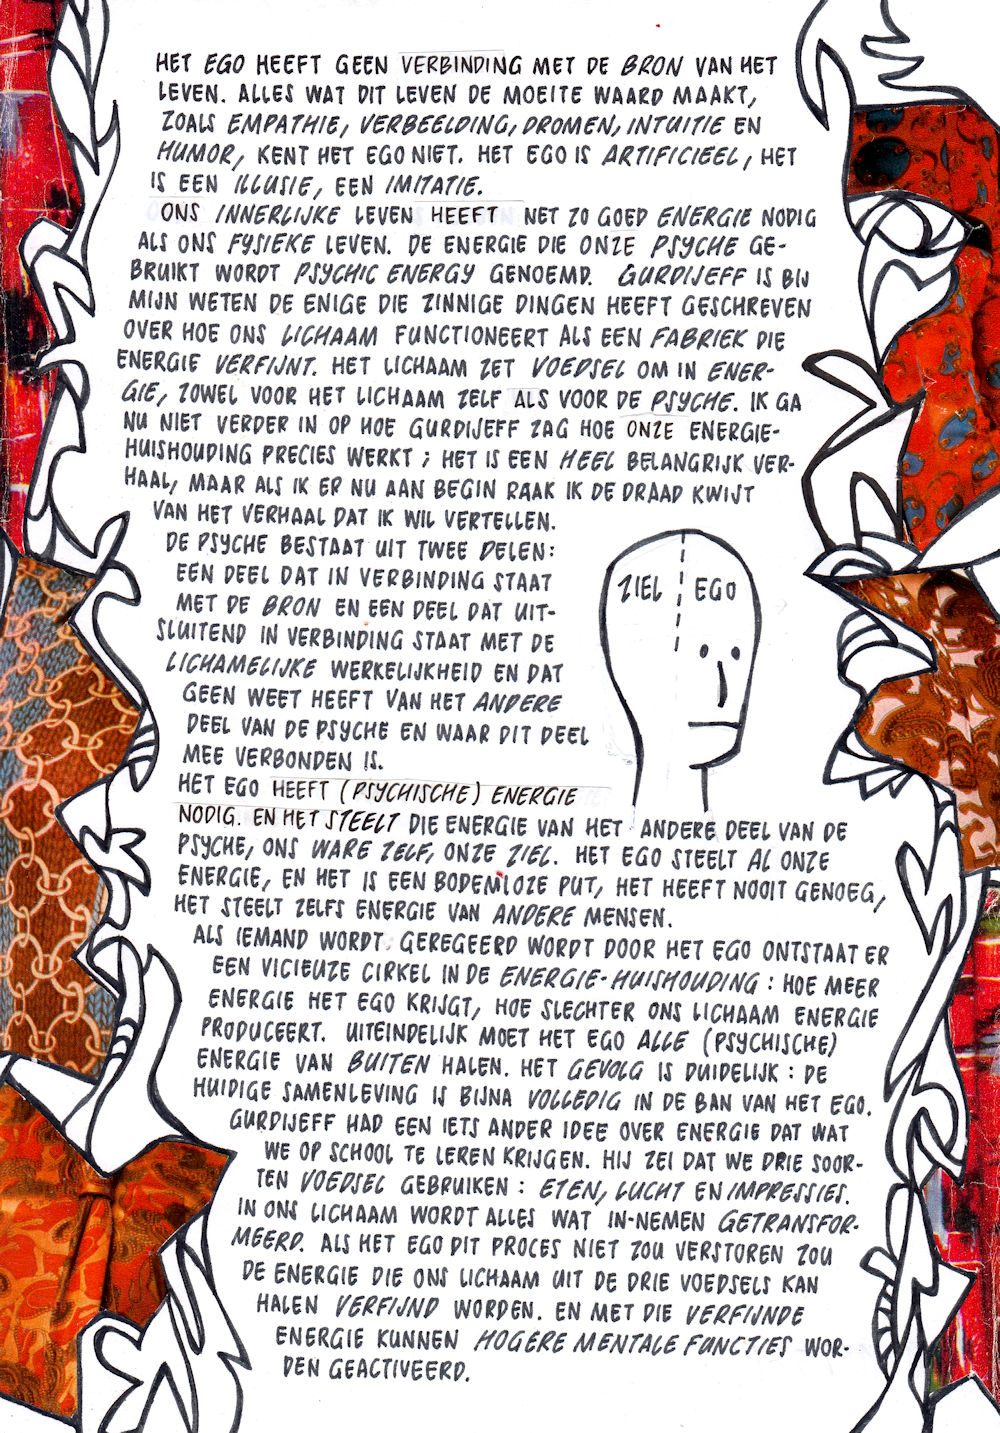 HET EGO HEEFT GEEN VERBINDING MET DE BRON VAN HET
LEVEN. ALLES WAT DIT LEVEN DE MOEITE WAARD MAAKT,
ZOALS EMPATHIE, VERBEELDING, DROMEN, INTUITIE EN
HUMOR, KENT HET EGO NIET. HET EGO IS ARTIFICIEEL, HET
IS EEN ILLUSIE, EEN IMITATIE.
ONS INNERLIJKE LEVEN HEEFT NET ZO GOED ENERGIE NODIG
ALS ONS FYSIEKE LEVEN. DE ENERGIE DIE ONZE PSYCHE GE-
BRUIKT WORDT PSYCHIC ENERGY GENOEMD. GURDIJEFF IS BIJ
MIJN WETEN DE ENIGE DIE ZINNIGE DINGEN HEEFT GESCHREVEN
OVER HOE ONS LICHAAM FUNCTIONEERT ALS EEN FABRIEK DIE
ENERGIE VERFIJNT. HET LICHAAM ZET VOEDSEL OM IN ENER-
GIE, ZOWEL VOOR HET LICHAAM ZELF ALS VOOR DE PSYCHE. IK GA
NU NIET VERDER IN OP HOE GURDIJEFF ZAG HOE ONZE ENERGIE-
HUISHOUDING PRECIES WERKT; HET IS EEN HEEL BELANGRIJK VER-
HAAL, MAAR ALS IK ER NU AAN BEGIN RAAK IK DE DRAAD KWIJT
VAN HET VERHAAL DAT IK WIL VERTELLEN.
DE PSYCHE BESTAAT UIT TWEE DELEN:
EEN DEEL DAT IN VERBINDING STAAT
MET DE BRON EN EEN DEEL DAT UIT-
SLUITEND IN VERBINDING STAAT MET DE
LICHAMELIJKE WERKELIJKHEID EN DAT
GEEN WEET HEEFT VAN HET ANDERE
DEEL VAN DE PSYCHE EN WAAR DIT DEEL
MEE VERBONDEN IS.
ZIEL EGO
HET EGO HEEFT (PSYCHISCHE) ENERGIE
NODIG. EN HET STEELT DIE ENERGIE VAN HET ANDERE DEEL VAN DE
PSYCHE, ONS WARE ZELF, ONZE ZIEL. HET EGO STEELT AL ONZE
ENERGIE, EN HET IS EEN BODEMLOZE PUT, HET HEEFT NOOIT GENOEG,
HET STEELT ZELFS ENERGIE VAN ANDERE MENSEN.
ALS IEMAND WORDT GEREGEERD WORDT DOOR HET EGO ONTSTAAT ER
EEN VICIEUZE CIRKEL IN DE ENERGIE-HUISHOUDING: HOE MEER
ENERGIE HET EGO KRIJGT, HOE SLECHTER ONS LICHAAM ENERGIE
PRODUCEERT. UITEINDELIJK MOET HET EGO ALLE (PSYCHISCHE)
ENERGIE VAN BUITEN HALEN. HET GEVOLG IS DUIDELIJK: DE
HUIDIGE SAMENLEVING IS BIJNA VOLLEDIG IN DE BAN VAN HET EGO.
GURDIJEFF HAD EEN IETS ANDER IDEE OVER ENERGIE DAT WAT
WE OP SCHOOL TE LEREN KRIJGEN. HIJ ZEI DAT WE DRIE SOOR-
TEN VOEDSEL GEBRUIKEN: ETEN, LUCHT EN IMPRESSIES.
IN ONS LICHAAM WORDT ALLES WAT IN-NEMEN GETRANSFOR-
MEERD. ALS HET EGO DIT PROCES NIET ZOU VERSTOREN ZOU
DE ENERGIE DIE ONS LICHAAM UIT DE DRIE VOEDSELS KAN
HALEN VERFIJND WORDEN. EN MET DIE VERFIJNDE
ENERGIE KUNNEN HOGERE MENTALE FUNCTIES WOR-
DEN GEACTIVEERD.